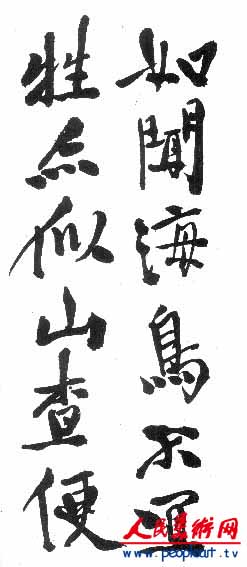 如聞海鳥不
牲亦似山查便
人民美術网
www.peopleart.tv